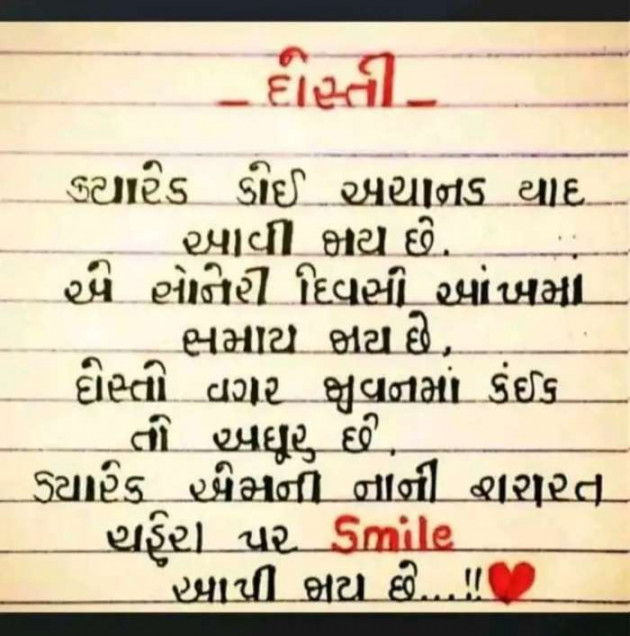 - દોસ્તી -
ક્યારેક કોઈ અચાનક યાદ
આવી જાય છે.
એ સોનેરી દિવસો આંખમાં
સમાય જાય છે,
દોસ્તો વગર જીવનમાં કંઈક
તો અધૂરુ છે.
ક્યારેક એમની નાની શરારત
ચહેરા પર Smile
આપી જાય છે...!!❤